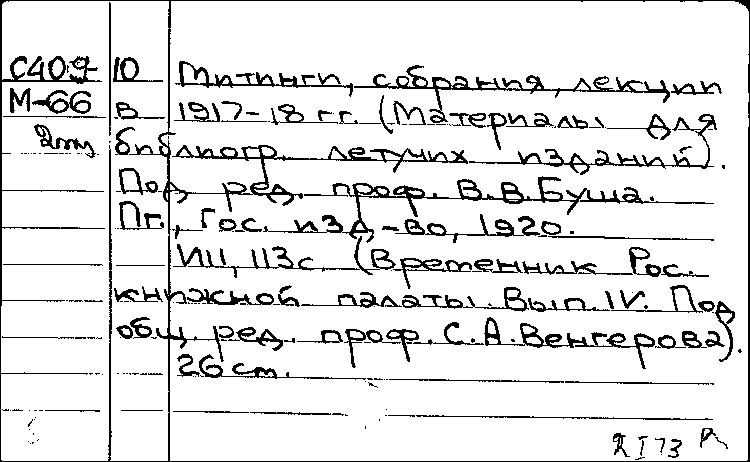 С409 10 Митинги, собрания, лекции
М-66 в 1917-18 гг. (Материалы для
библиогр. летучих изданий).
Под ред. проф. В.В.Буша.
Пг., Гос. изд-во, 1920.
VIII, 113с. (Временник Рос.
книжной палаты. Вып. IV. Под
общ. ред. проф. С.А.Венгерова).
26 cm.
I 73